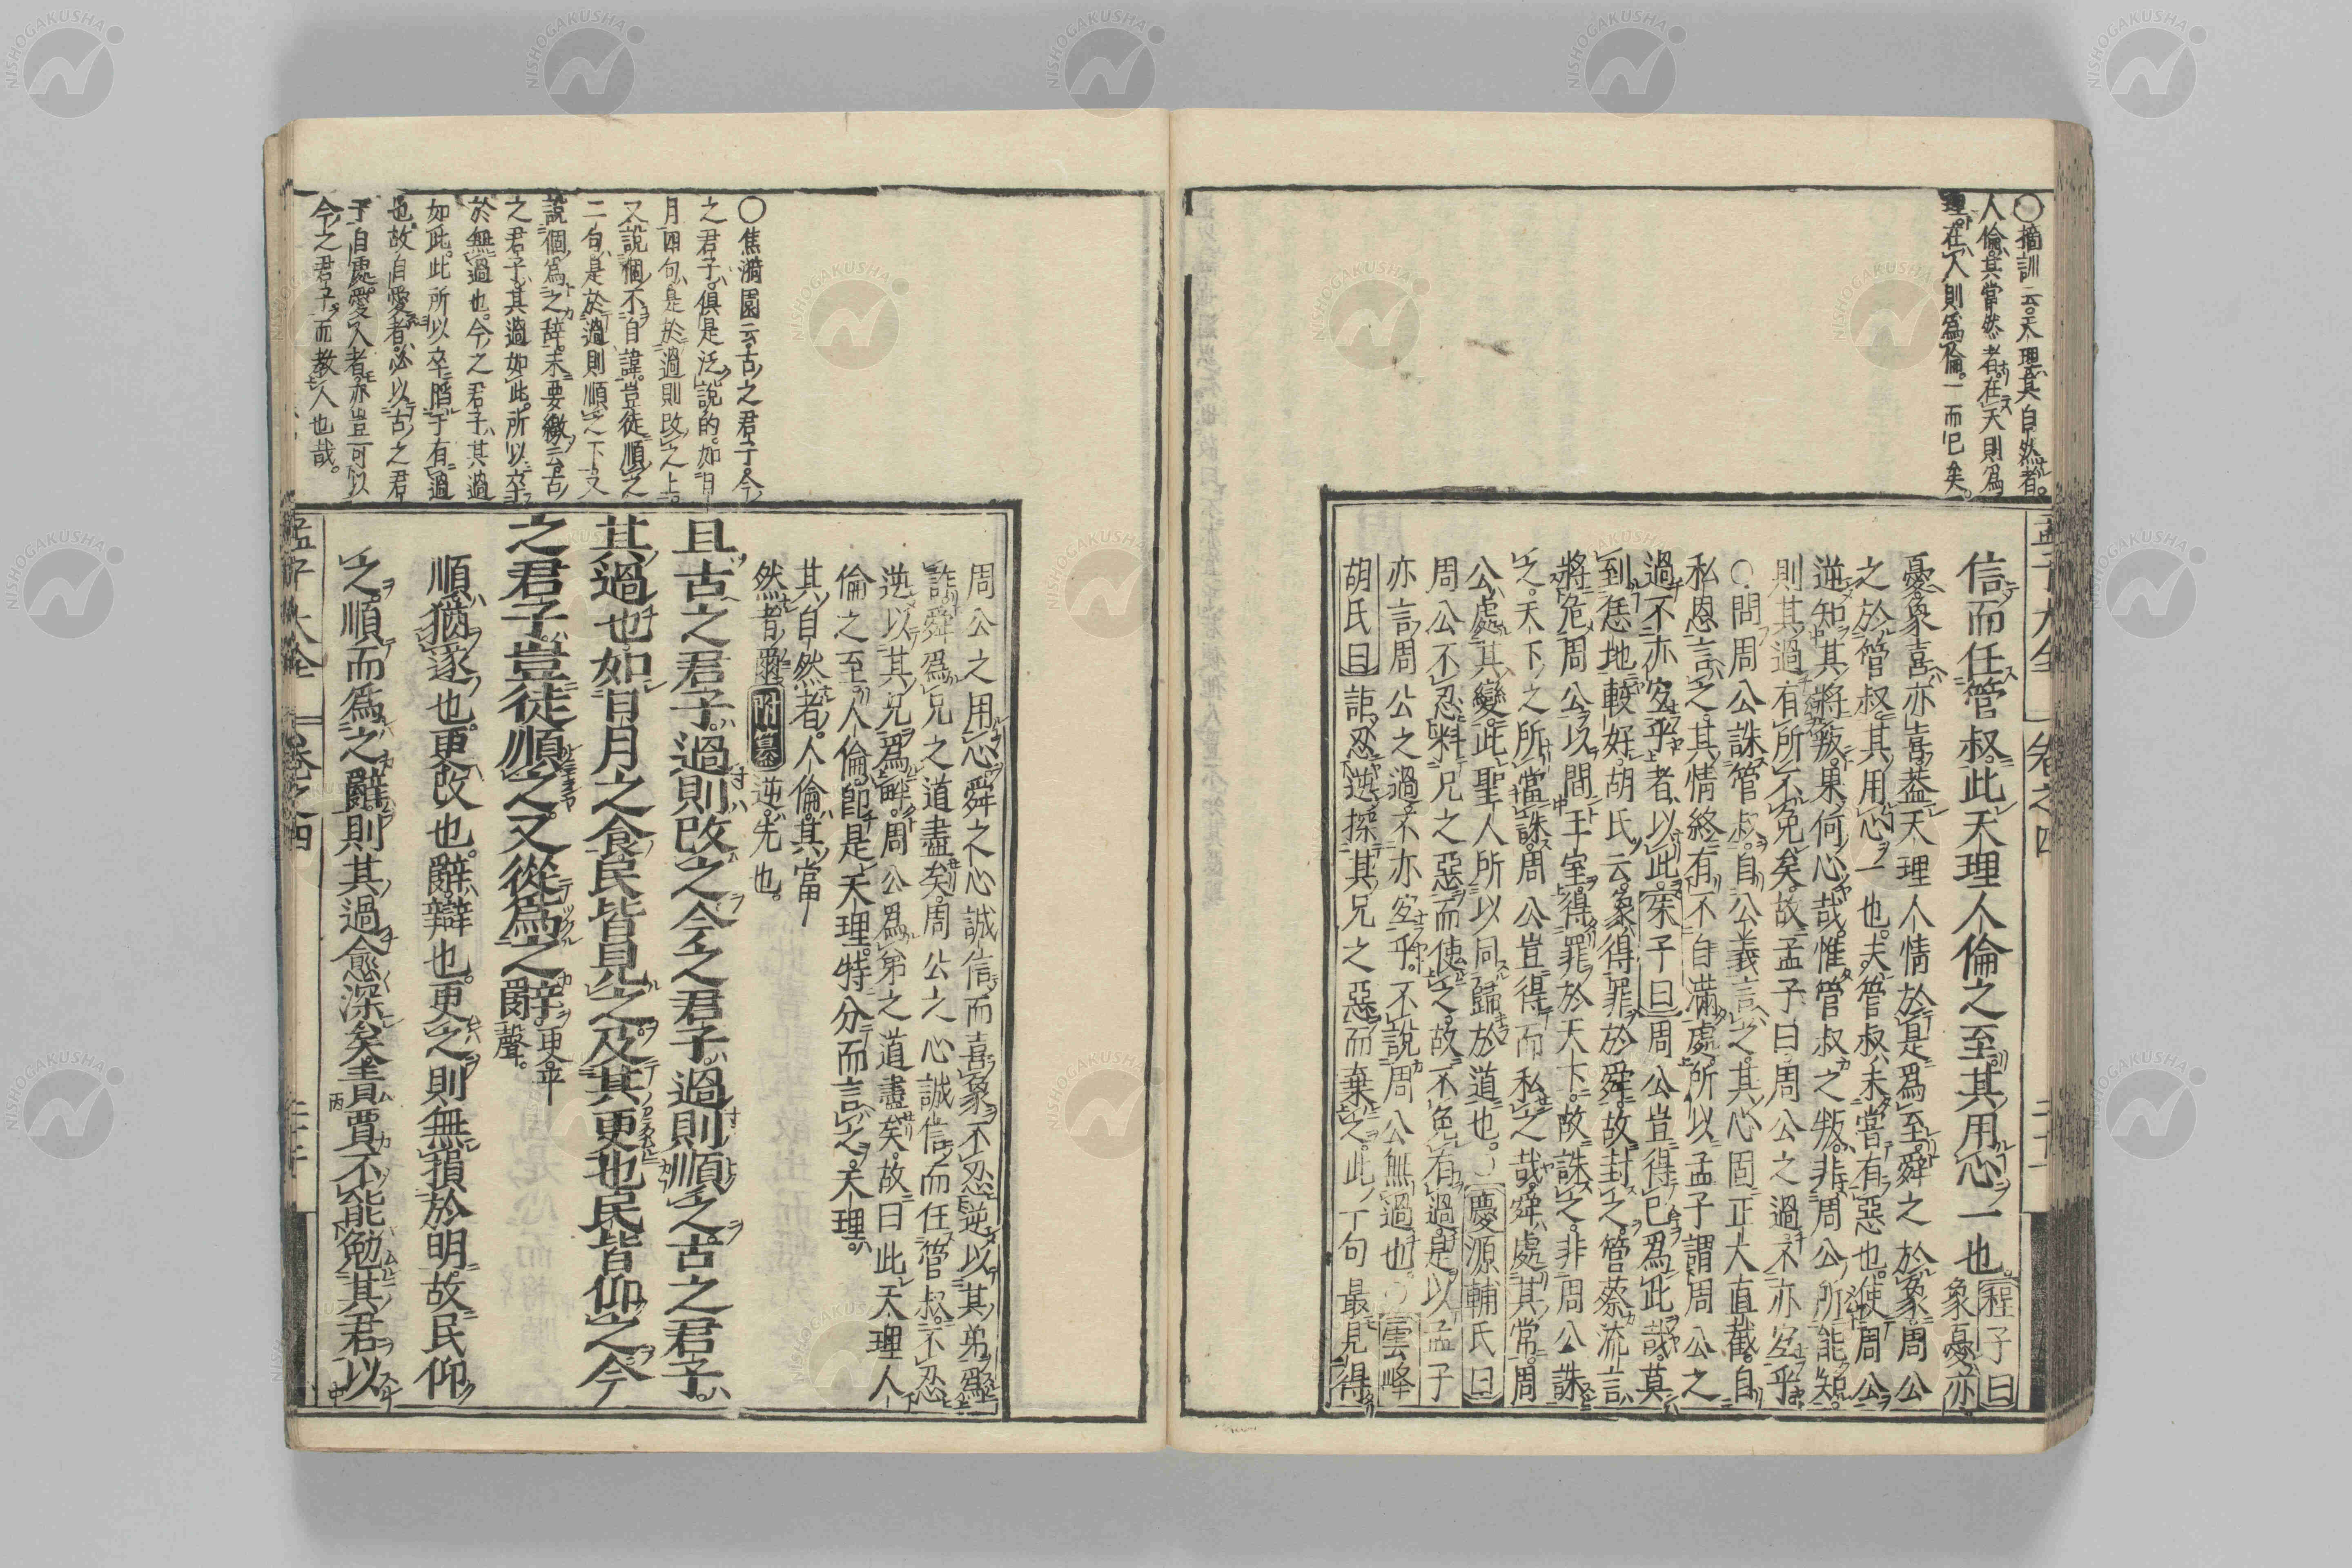 ○摘訓云天理其自然者。
人倫其當然者在天則爲
理在人則爲倫一而已矣。
孟子大全 卷之四 二十一
信而任管叔此天理人倫之至其用心一也。程子曰
象憂亦
憂象喜亦喜葢天理人情於是爲至。舜之於象周公
之於管叔其用心一也。夫管叔未嘗有惡也。使周公
逆知其將叛果何心哉惟管叔之叛非周公所能知
則其過有所不免矣故孟子曰周公之過不亦宜乎
○問周公誅管叔自公義言之其心固正大直截自
私恩言之其情終有不自滿處所以孟子謂周公之
過不亦宜乎者以此。朱子曰周公豈得已爲此哉莫
到恁地較好胡氏云象得罪於舜故封之管蔡流言
將危周公以間王室得罪於天下故誅之非周公誅
之天下之所當誅周公豈得而私之哉舜處其常周
公處其變此聖人所以同歸於道也。○慶源輔氏曰
周公不忍料兄之惡而使之故不免有過是以孟子
亦言周公之過不亦宜乎不說周公無過也○雲峰
胡氏曰詎忍逆探其兄之惡而棄之此一句最見得
周公之用心舜之心誠信而喜象不忍逆以其弟爲
詐舜爲兄之道盡矣周公之心誠信而任管叔不忍
逆以其兄爲畔周公爲弟之道盡矣故曰此天理人
倫之至人倫即是天理特分而言之天理
其自然者人倫其當
然者爾附纂逆先也。
且古之君子過則改之今之君子過則順之古之君子
其過也如日月之食民皆見之及其更也民皆仰之今
之君子豈徒順之又從爲之辭更平
聲。
順猶遂也。更改也。辭辯也。更之則無損於明故民仰
之順而爲之辭則其過愈深矣責賈不能勉其君以
孟子大全 卷之四
○焦漪園云古之君子今
之君子俱是泛說的如日
月四句是於過則改之上
又說個不自諱豈徒順之
二句是於過則順之下又
說個爲之辞末要繳云古
之君子其過如此所以卒
於無過也。今之君子其過
如此。此所以卒陷于有過
也故自愛者必以古之君
子自處愛人者亦豈可以
今之君子而教人也哉。